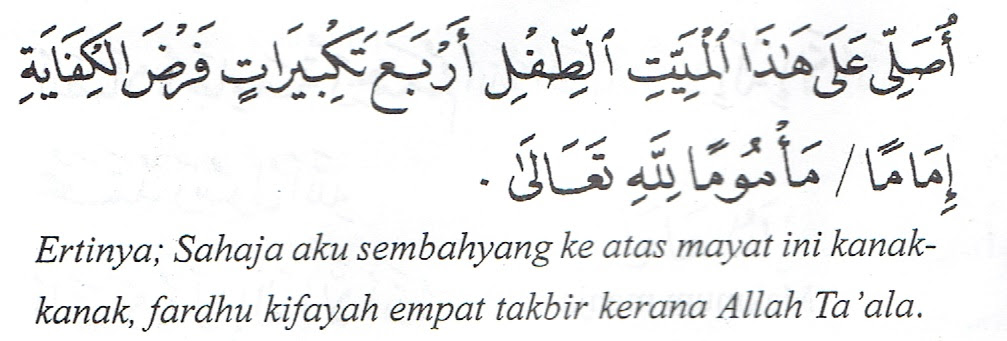 أُصَلِّى عَلَى هَٰذَا الْمَيِّتِ الطِّفْلِ أَرْبَعَ تَكْبِيرَاتٍ فَرْضَ الْكِفَايَةِ
إِمَامًا / مَأْمُومًا لِلَّهِ تَعَالَىٰ .
Ertinya; Sahaja aku sembahyang ke atas mayat ini kanak-
kanak, fardhu kifayah empat takbir kerana Allah Ta’ala.